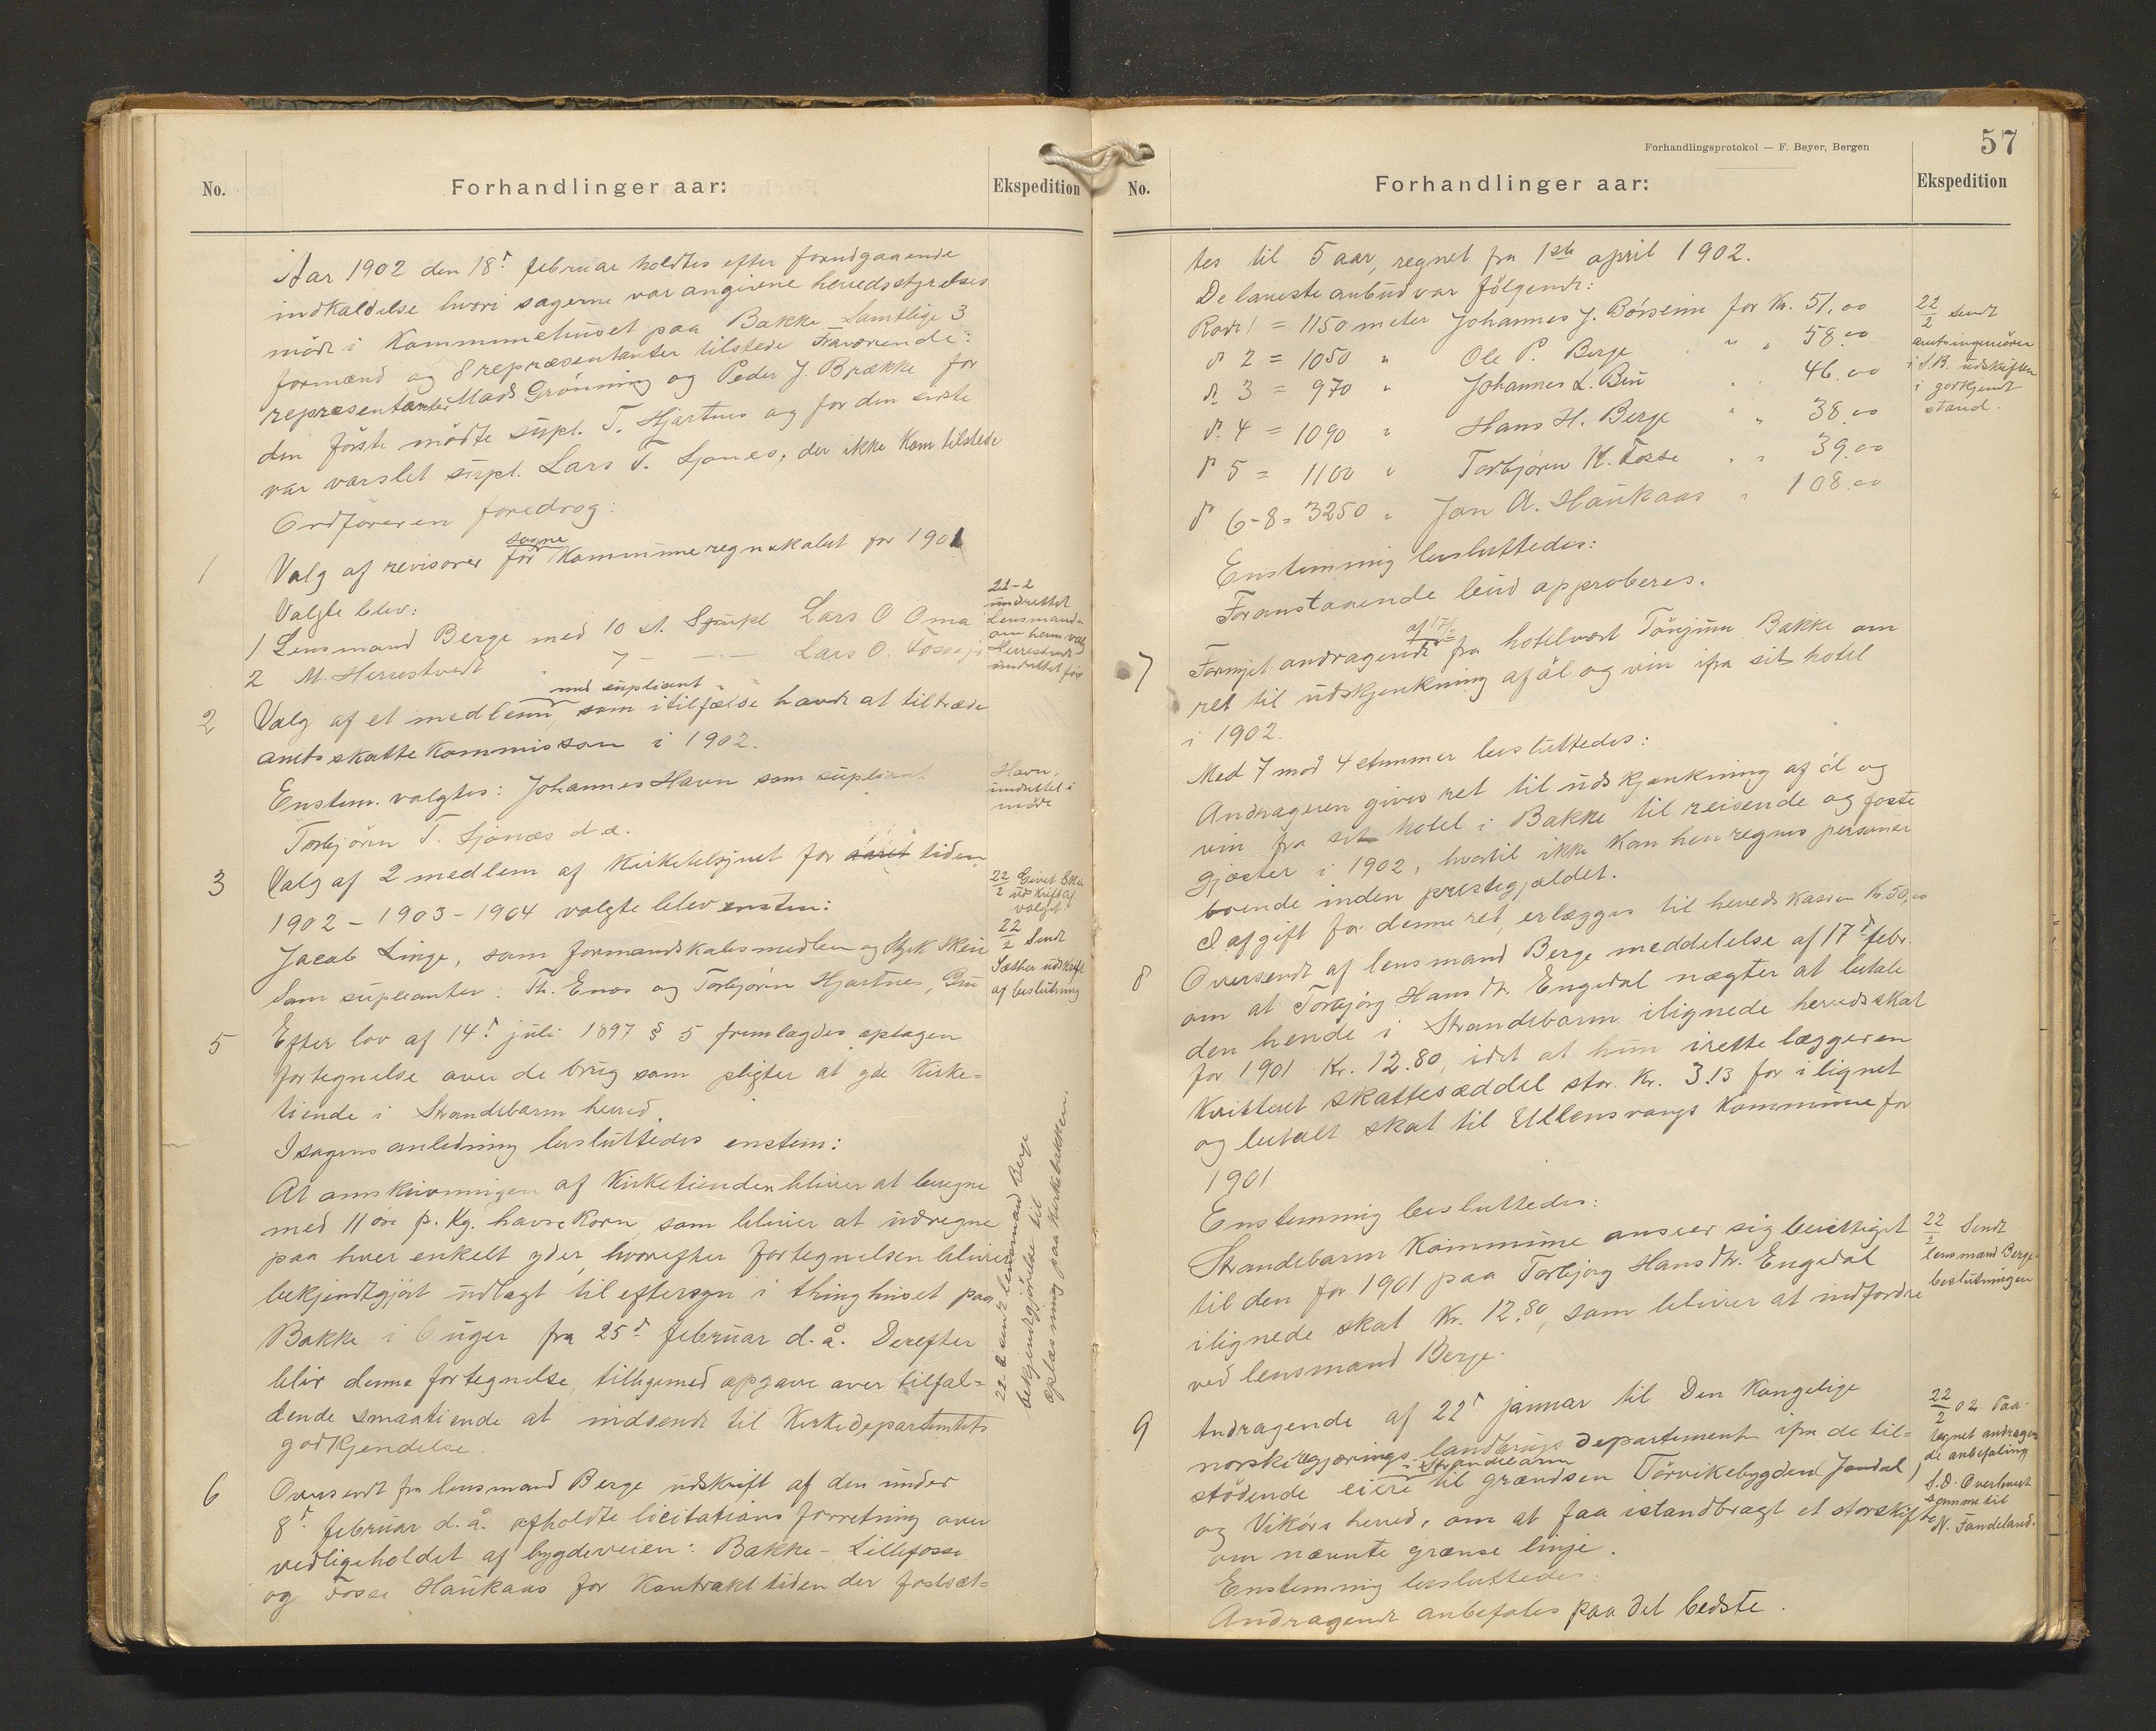 No.
Forhandlinger aar:
Ekspedition
Aar 1902 den 18d. februar holdtes efter forudgaaende
indkaldelse hvori sagerne var angivene herredsstyrelses
möde i Kommunehuset paa Bakke Samtlige 3
formænd og 8 repræsentanter tilstede Fraværende:
representanter Mads Grönning og Peder J. Brække for
den förste mödte supl. T. Hjartnes og for den sidste
var varslet supl. Lars T. Sjones, der ikke kom tilstede
Ordföreren foredrog:
1 Valg af revisorer for sogne Kommuneregnskabet for 1901
Valgte blev:
1 Lensmand Berge med 10 st. Supl Lars O Oma
2 M. Herrestvedt " 7 — — Lars O. Fosse
21-2
undrettet
Lensmanden
om hans valg
Herrestvedt
undrettet før
2 Valg af et medlem med supliant, som i tilfælde havde at tiltræde
amtsskattekommisson i 1902.
Enstem. valgtes: Johannes Havn som supliant
Torbjörn T. Sjonæs d.æ.
Havn,
undrettet i
möde
3 Valg af 2 medlem af Kirketilsynet for aaret tiden
1902 - 1903 - 1904 valgte blev enstem:
Jacob Linge, som formandskabsmedlem og Styrk Skeie
Som supleanter: Th. Enæs og Torbjørn Hjartnes,
22/2 Givet Skeie
udskrift af
valget.
22/2 Sendt
Sæther udskrift
af beslutning
5 Efter lov af 14d. juli 1897 § 5 fremlagdes optagen
fortegnelse over de brug som pligter at yde Kirke=
tiende i Strandebarm herred.
I sagens anledning besluttedes enstem:
At omskrivningen af Kirketienden bliver at beregne
med 11 öre p. Kg. havre korn, som bliver at udregne
paa hver enkelt yder, hvorefter fortegnelsen bliver
bekjendtgjort udlagt til eftersyn i thinghuset paa
Bakke i 6 uger fra 25d. februar d.å. Derefter
blir denne fortegnelse, tilligemed opgave over tilfal=
dende smaatiende at indsende til Kirkedepartemtets
godkjendelse.
22-2 sendt lensmand Berge
bekjendtgjörelse til
oplæsning paa Kirkebakken.
6 Oversendt fra lensmand Berge udskrift af den under
8d. februar d.å. afholdte licitations forretning over
vedligeholdet af bygdeveien: Bakke - Lillefosse
og Fosse Haukaas for Kontrakttiden der fastsæt=
Forhandlingsprotokol — F. Beyer, Bergen
57
No.
Forhandlinger aar:
Ekspedition
tes til 5 aar, regnet fra 1ste april 1902.
De laveste anbud var fölgende:
Rode 1 = 1150 meter Johannes J. Börsheim for Kr. 51,00
do 2 = 1050 " Ole P. Berge " " 58.00
do 3 = 970 " Johannes L. Bru " " 46.00
do 4 = 1090 " Hans H. Berge " " 38.00
do 5 = 1100 " Torbjørn K. Fosse " " 39.00
do 6-8 = 3250 " Jon A. Haukaas " 108.00
22/2 sendt
amtsingeniören
i S.B. udskriften
i godkjendt
stand.
Enstemmig besluttedes:
Foranstaaende bud approberes.
7 Fornyet andragende af 17/2 fra hotelvært Tönjum Bakke om
ret til udskjenkning af öl og vin ifra sit hotel
i 1902.
Med 7 mod 4 stemmer besluttedes:
Andrageren gives ret til udskjænkning af öl og
vin fra sit hotel i Bakke til reisende og faste
gjæster i 1902, hvortil ikke kan henregnes personer
boende inden prestegjældet.
I afgift for denne ret erlægges til herredskassen Kr. 50,00
8 Oversendt af lensmand Berge meddelelse af 17d febr.
om at Torbjörg Hansdtr. Engedal nægter at betale
den hende i Strandebarm ilignede herredsskat
for 1901 Kr. 12.80, idet at hun irette lægger en
kvitteret skattesæddel stor Kr. 3.13 for ilignet
og betalt skat til Ullensvangs Kommune for
1901
Enstemmig besluttedes:
Strandebarm Kommune anseer sig berettiget
til den for 1901 paa Torbjörg Hansdtr. Engedal
ilignede skat Kr. 12.80, som bliver at indfordre
ved lensmand Berge.
22/2 Sendt
lensmand Berge
beslutningen
9 Andragende af 22d januar til Den Kongelige
norske regjerings landbrugsdepartement ifra de til=
stödende eiere i Strandebarm til grændsen Törvikebygden (Jondal)
og Vikörs herred, om at faa istandbragt et storskifte
om nævnte grænse linje.
Enstemmig besluttedes:
Andragende anbefales paa det bedste.
22/2 02 Paa-
tegnet andragen
de anbefaling
S.D. Overlevert
samme til
N. Tandeland.